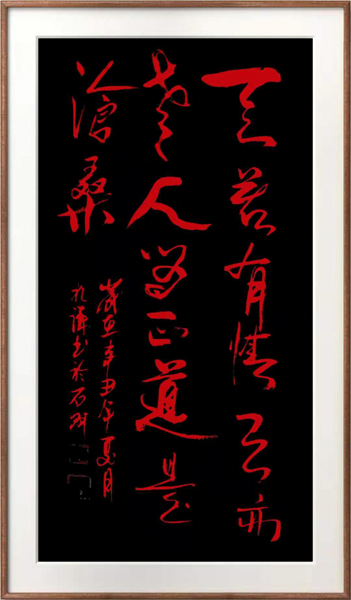 天若有情天亦
老人间正道是
沧桑
岁在辛丑年夏月
孔谋书於石